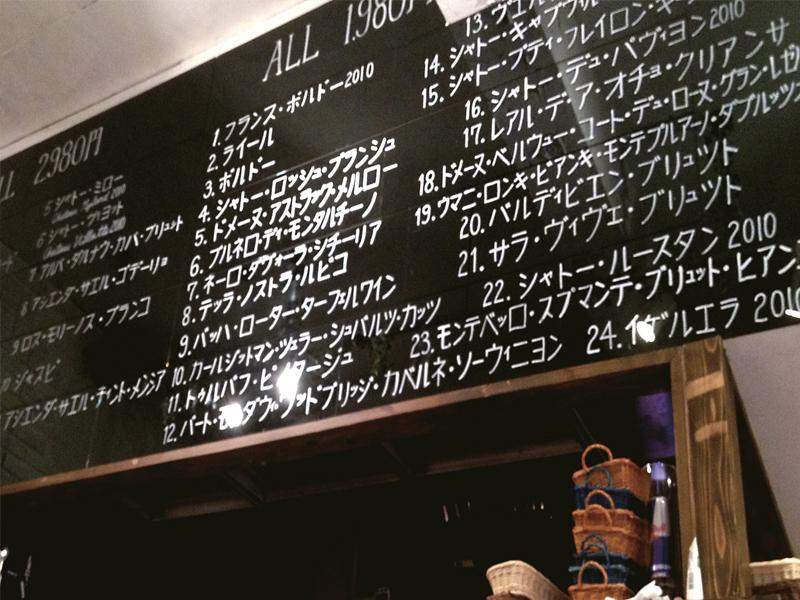 2980円
5 シャトー・ミロー
6 シャトー・
7 アルバ・ダルナウ・カバ・ブリュット
8 アシエンダ・サエル・ゴデーリョ
9 ロス・モリーノス・ブランコ
10 ジャスピ
アシエンダ・サエル・ティント・メンシア
ALL 1.980円
1. フランス・ボルドー2010
2. ライール
3. ボルドー
4. シャトー・ロッシュ・ブランシュ
5. ドメーヌ・アストラック・メルロー
6. ブルネロ・ディ・モンタルチーノ
7. ネーロ・ダヴォーラ・シチーリア
8. テッラ・ノストラ・ルビコ
9. バッハ・ローター・ターフェルワイン
10. カールジットマン・ツェラー・シュバルツ・カッツ
11. トゥルバフ・ピノタージュ
12. バート・モンダヴィ・ウッドブリッジ・カベルネ・ソーウィニヨン
13.
14. シャトー・
15. シャトー・プティ・フレイロン・キ
16. シャトー・デュ・パヴィヨン2010
17. レアル・デ・ア・オチョ・クリアンサ
18. ドメーヌ・ベルヴュー・コート・デュ・ローヌ・グラン・レゼ
19. ウマニ・ロンキ・ビアンキ・モンテプルアーノ・ダブルッツ
20. バルディビエン・ブリュット
21. サラ・ヴィヴェ・ブリュット
22. シャトー・ルースタン 2010
23. モンテベッロ・スプマンテ・ブリュット・ビアン
24. イゲルエラ 2010